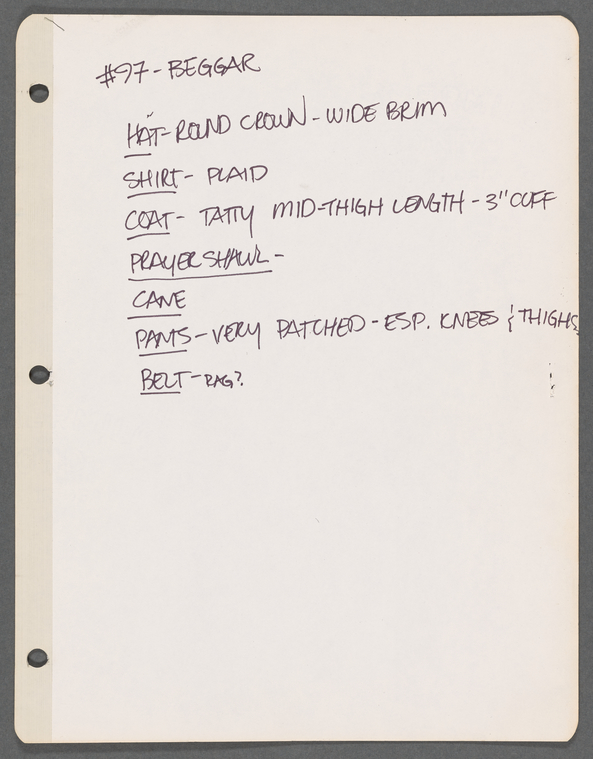 #97 - BEGGAR
HAT - ROUND CROWN - WIDE BRIM
SHIRT - PLAID
COAT - TATTY MID-THIGH LENGTH - 3" CUFF
PRAYER SHAWL -
CANE
PANTS - VERY PATCHED - ESP. KNEES & THIGHS
BELT - RAG?